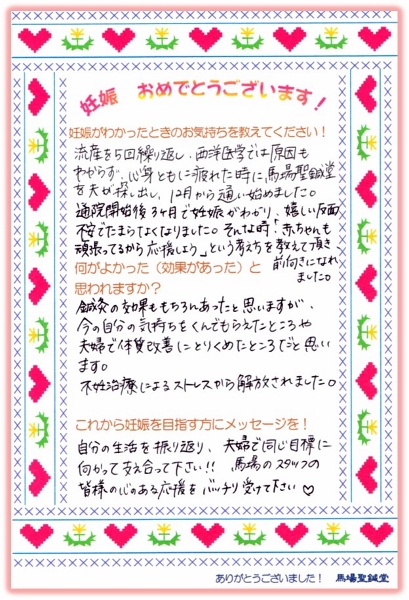 妊娠 おめでとうございます!
妊娠がわかったときのお気持ちを教えてください!
流産を5回繰り返し、西洋医学では原因も
わからず、心身ともに疲れた時に馬場聖鍼堂
を夫が探し出し、12月から通い始めました。
通院開始後3ヶ月で妊娠がわかり、嬉しい反面
不安でたまらなくなりました。そんな時「赤ちゃんも
頑張ってるから応援しよう」という考え方を教えて頂き、
前向きになれ
ました。
何がよかった(効果があった)と
思われますか?
鍼灸の効果ももちろんあったと思いますが、
今の自分の気持ちをくんでもらえたところや
夫婦で体質改善にとりくめたところだと思い
ます。
不妊治療によるストレスから解放されました。
これから妊娠を目指す方にメッセージを!
自分の生活を振り返り、夫婦で同じ目標に
向かって支え合って下さい!! 馬場のスタッフの
皆様の心のある応援をバッチリ受けて下さい♡
ありがとうございました! 馬場聖鍼堂